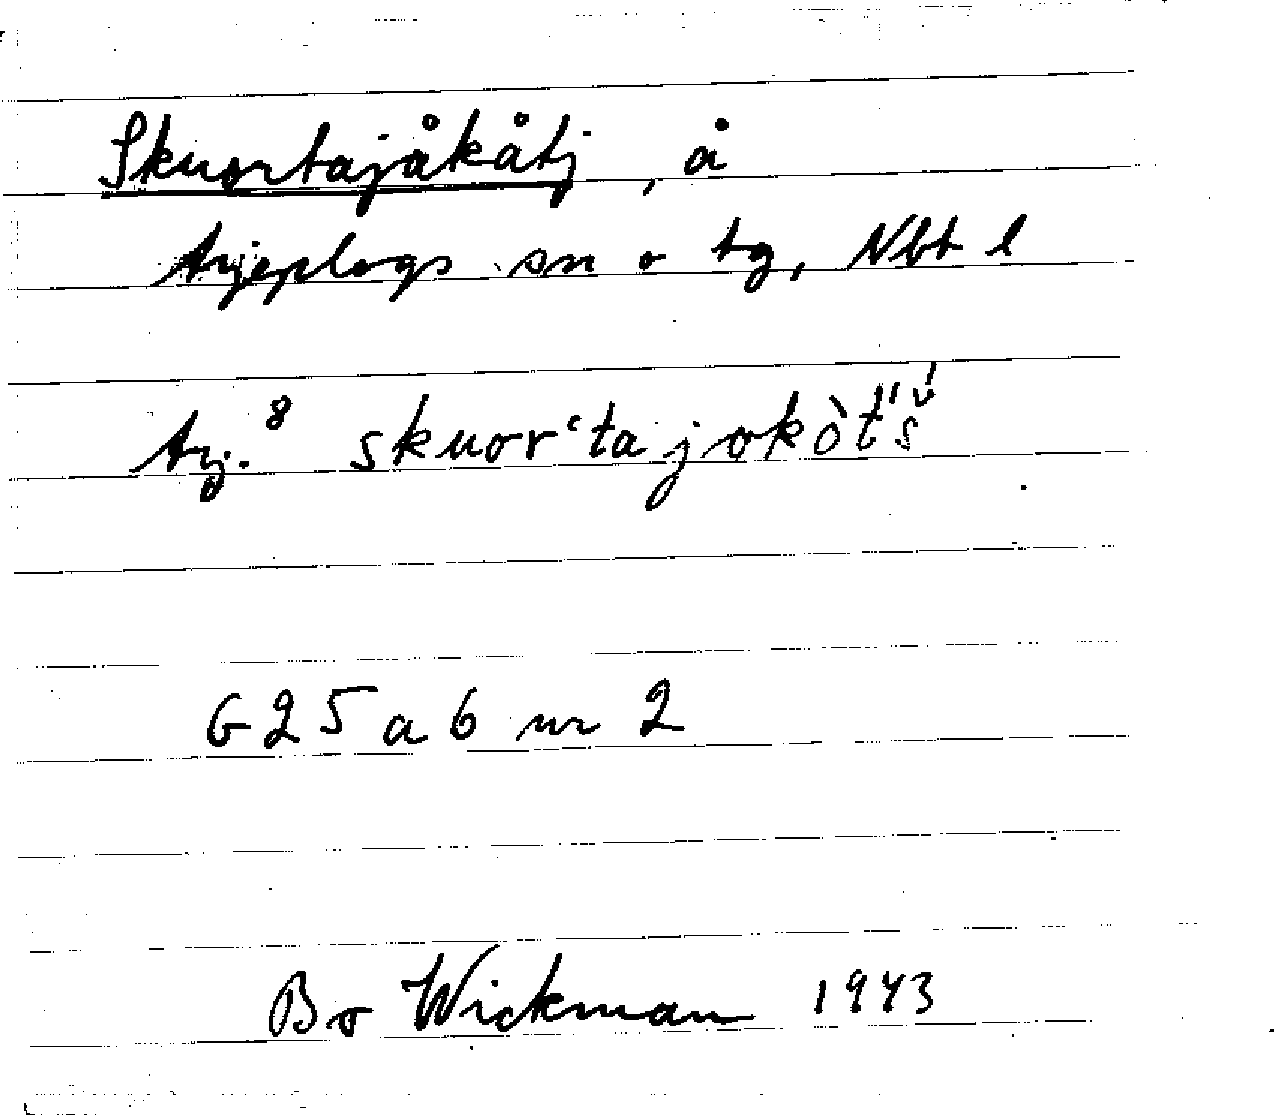 Skuortajåkåtj, å
Arjeplogs sn o tg, Nbt l
Arj.⁸ skuorʻtajokòt́'š́
G 25 a 6 nr 2
Bo Wickman 1943